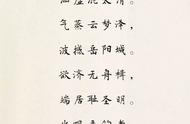 涵虚混太清。
气蒸云梦泽，
波撼岳阳城。
欲济无舟楫，
端居耻圣明。